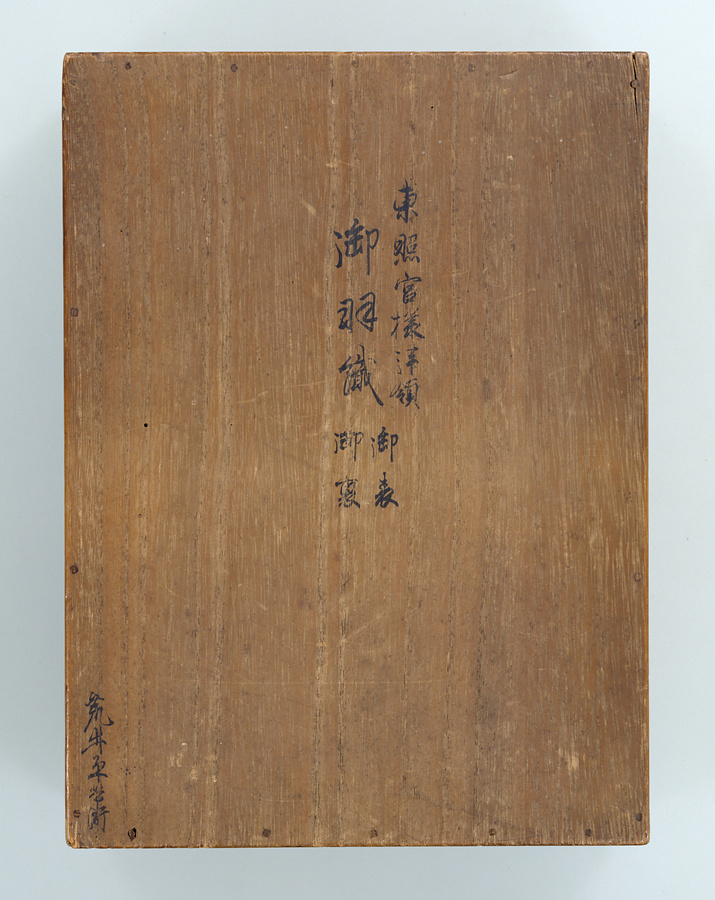 東照宮様拝領
御羽織
御表
御裏
荒井平兵衛